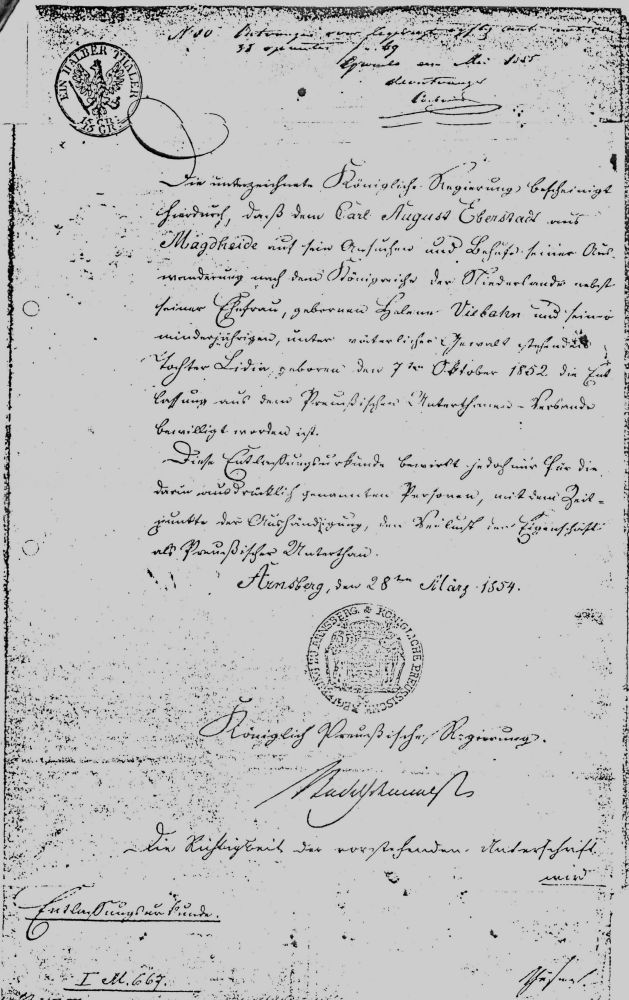 EIN HALBER THALER
15 GR.
No 80
Mai
Die unterzeichnete Königliche Regierung bescheinigt
hierdurch, daß dem Carl August Eberstadt aus
Magdheide auf sein Ansuchen und Behufs seiner Aus-
wanderung nach dem Königreiche der Niederlande nebst
seiner Ehefrau, gebornen Helene Visbahn und seiner
minderjährigen, unter väterlicher Gewalt stehenden
Tochter Lidia, geboren den 7ten Oktober 1852 die Ent
lassung aus dem Preußischen Unterthanen-Verbande
bewilligt worden ist.
Diese Entlassungsurkunde bewirkt jedoch nur für die
darin ausdrücklich genannten Personen, mit dem Zeit-
punkte der Aushändigung, den Verlust der Eigenschaft
als Preußischer Unterthan.
Arnsberg, den 28ten März 1854.
KÖNIGLICHE PREUSSISCHE REGIERUNG ZU ARNSBERG
Königlich Preußische Regierung.
Die Richtigkeit der vorstehenden Unterschrift
wird
Entlassungsurkunde.
I M. 667.